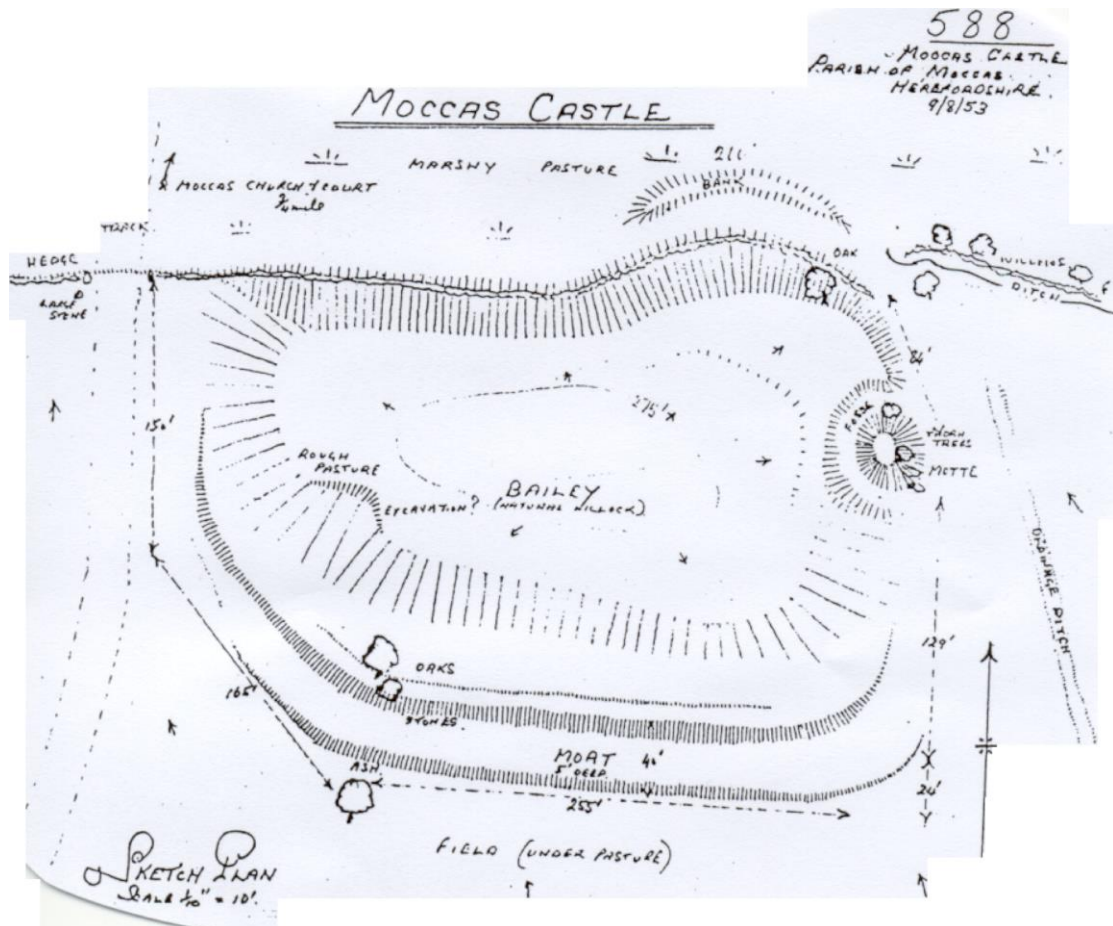 588
MOCCAS CASTLE
PARISH OF MOCCAS
HEREFORDSHIRE.
9/8/53
MOCCAS CASTLE
MARSHY PASTURE
BANK
MOCCAS CHURCH & COURT
¼ mile
TRACK
HEDGE
LARGE
STONE
OAK
WILLOWS
DITCH
84'
275'
FOSSE
THORN
TREES
MOTTE
ROUGH
PASTURE
EXCAVATION?
BAILEY
(NATURAL HILLOCK)
DRAINAGE DITCH
129'
165'
OAKS
STONES
MOAT 40'
5' DEEP
ASH
255'
24'
FIELD (UNDER PASTURE)
SKETCH PLAN
SCALE 1/10" = 10'.